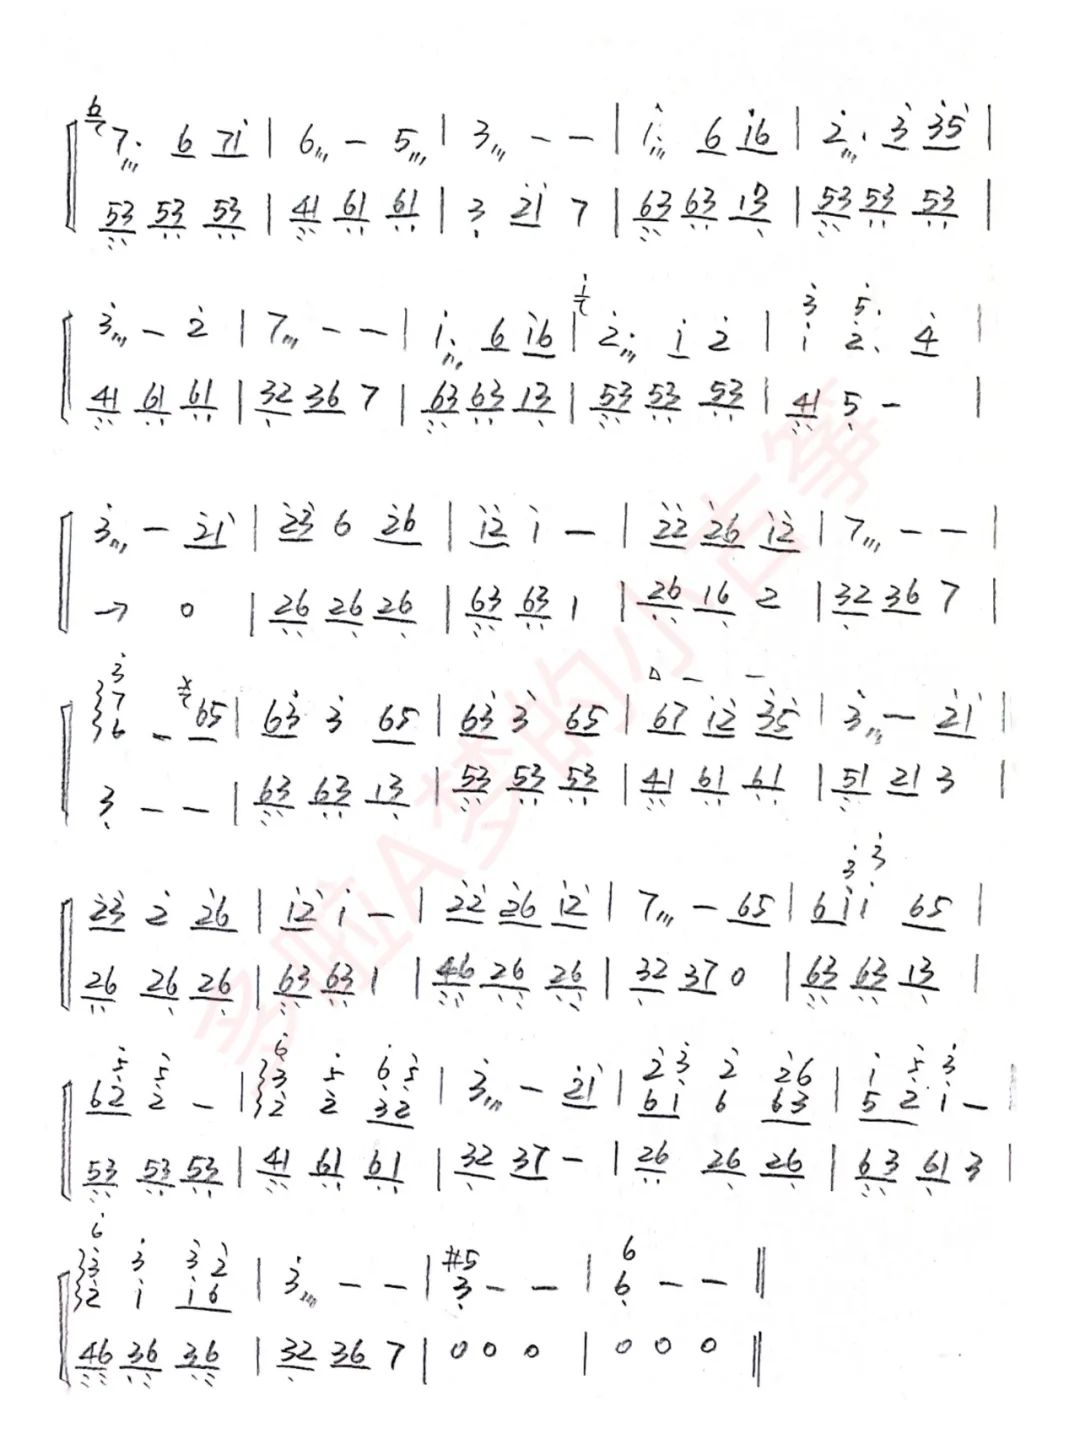 6 7· 6 7i | 6 — 5 | 3 — — | i· 6 i6 | 2· 3 35 |
53 53 53 | 41 61 61 | 3 21 7 | 63 63 13 | 53 53 53 |
3 — 2 | 7 — — | i· 6 i6 | i 2· i 2 | 3 i 5· 2· 4 |
41 61 61 | 32 36 7 | 63 63 13 | 53 53 53 | 41 5 — |
3 — 21 | 23 6 26 | i2 i — | 22 26 i2 | 7 — — |
→ 0 | 26 26 26 | 63 63 1 | 26 16 2 | 32 36 7 |
3 7 6 — 65 | 63 3 65 | 63 3 65 | 67 i2 35 | 3 — 21 |
3 — — | 63 63 13 | 53 53 53 | 41 61 61 | 51 21 3 |
23 2 26 | i2 i — | 22 26 i2 | 7 — 65 | 3 3 6i i 65 |
26 26 26 | 63 63 1 | 46 26 26 | 32 37 0 | 63 63 13 |
5 5 62 2 — | 6 3 2 5 2 65 32 | 3 — 21 | 23 2 26 61 6 63 | i 5 3 5 2 i — |
53 53 53 | 41 61 61 | 32 37 — | 26 26 26 | 63 61 3 |
6 3 2 3 i 32 i6 | 3 — — | #5 3 — — | 6 6 — — ‖
46 36 36 | 32 36 7 | 0 0 0 | 0 0 0 ‖
多啦A梦的小古筝